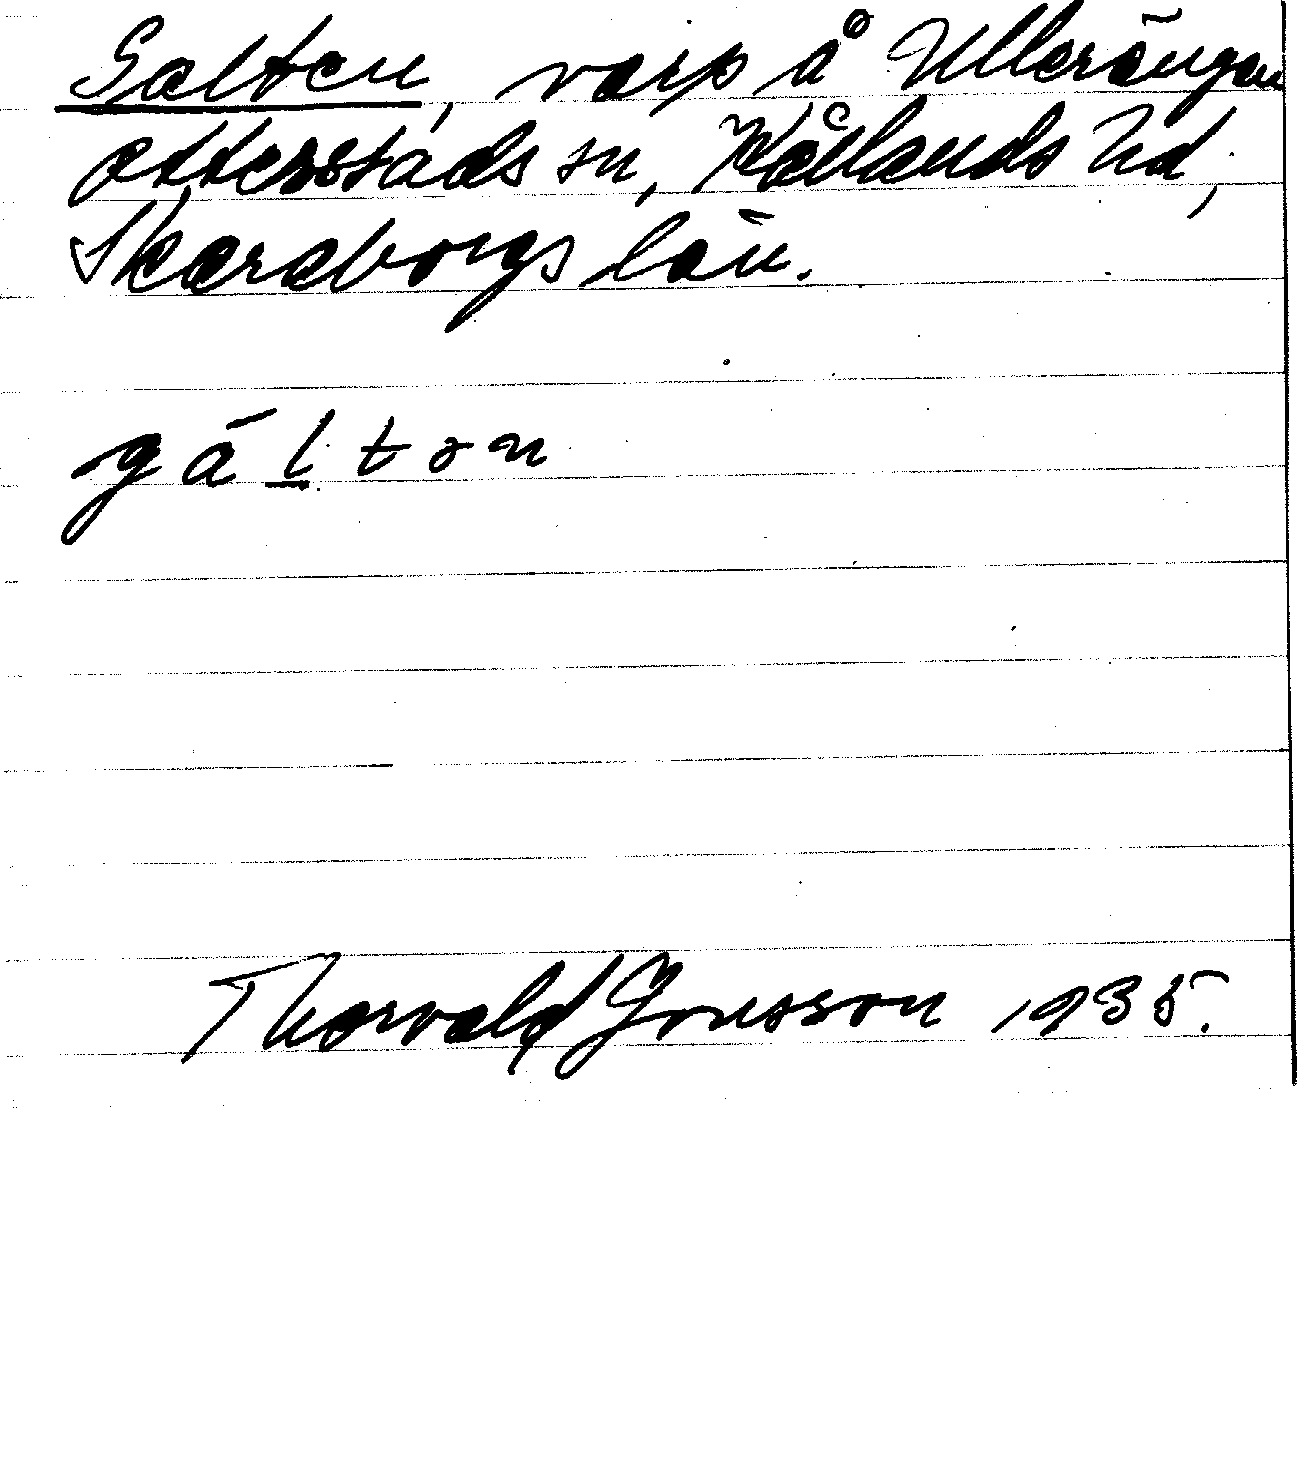 Galten, varp å Ullerängen
Otterstads sn, Kållands hd,
Skaraborgs län.
gáltən
Thorvald Jonsson 1935.